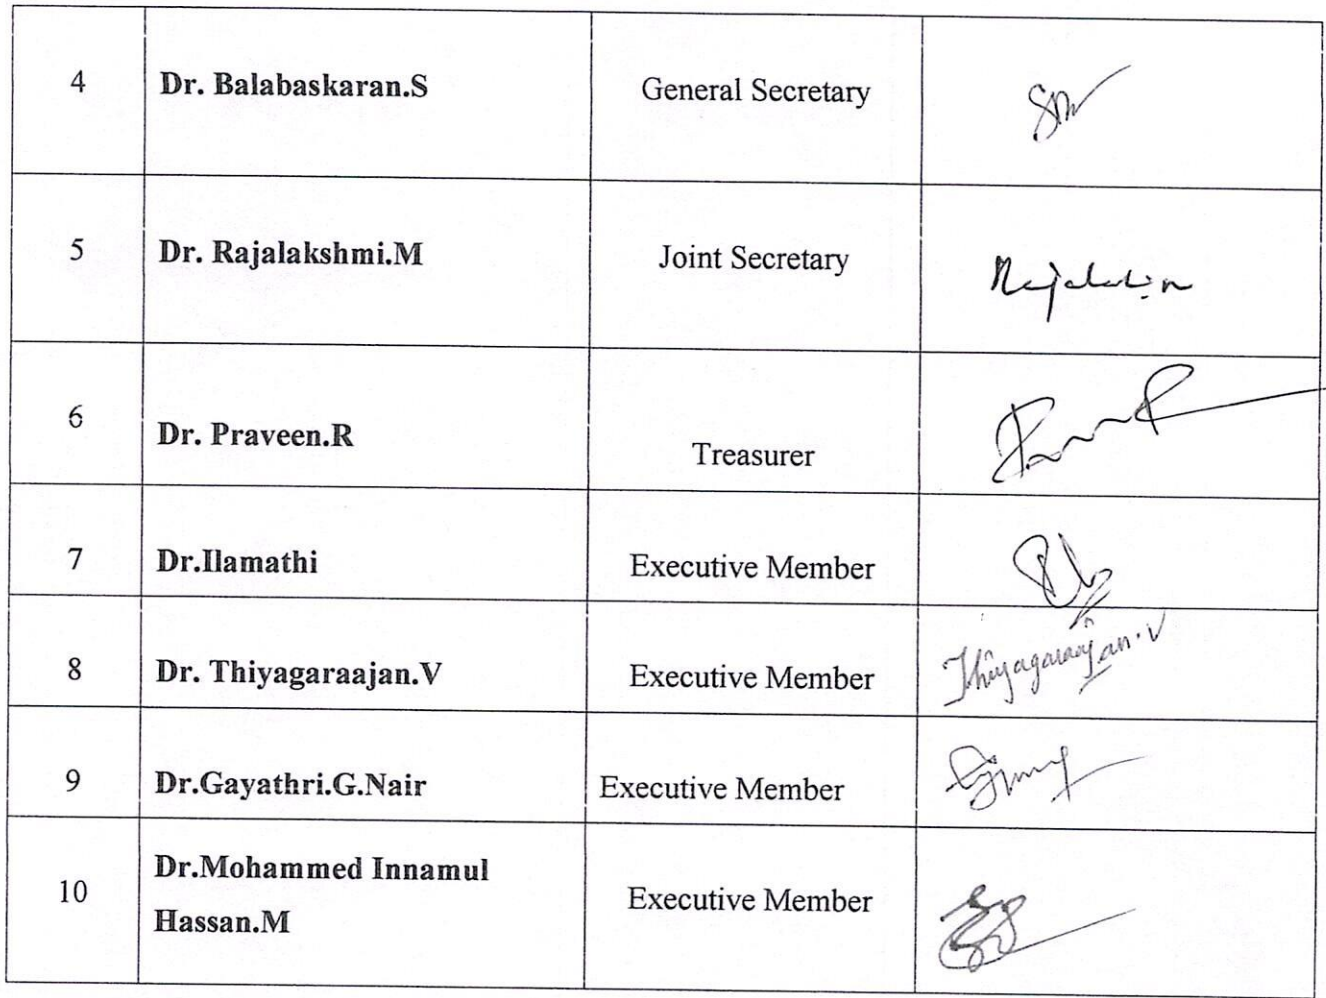 4 Dr. Balabaskaran.S General Secretary
5 Dr. Rajalakshmi.M Joint Secretary
6 Dr. Praveen.R Treasurer
7 Dr.Ilamathi Executive Member
8 Dr. Thiyagaraajan.V Executive Member Thiyagaraajan.V
9 Dr.Gayathri.G.Nair Executive Member
10 Dr.Mohammed Innamul
Hassan.M Executive Member